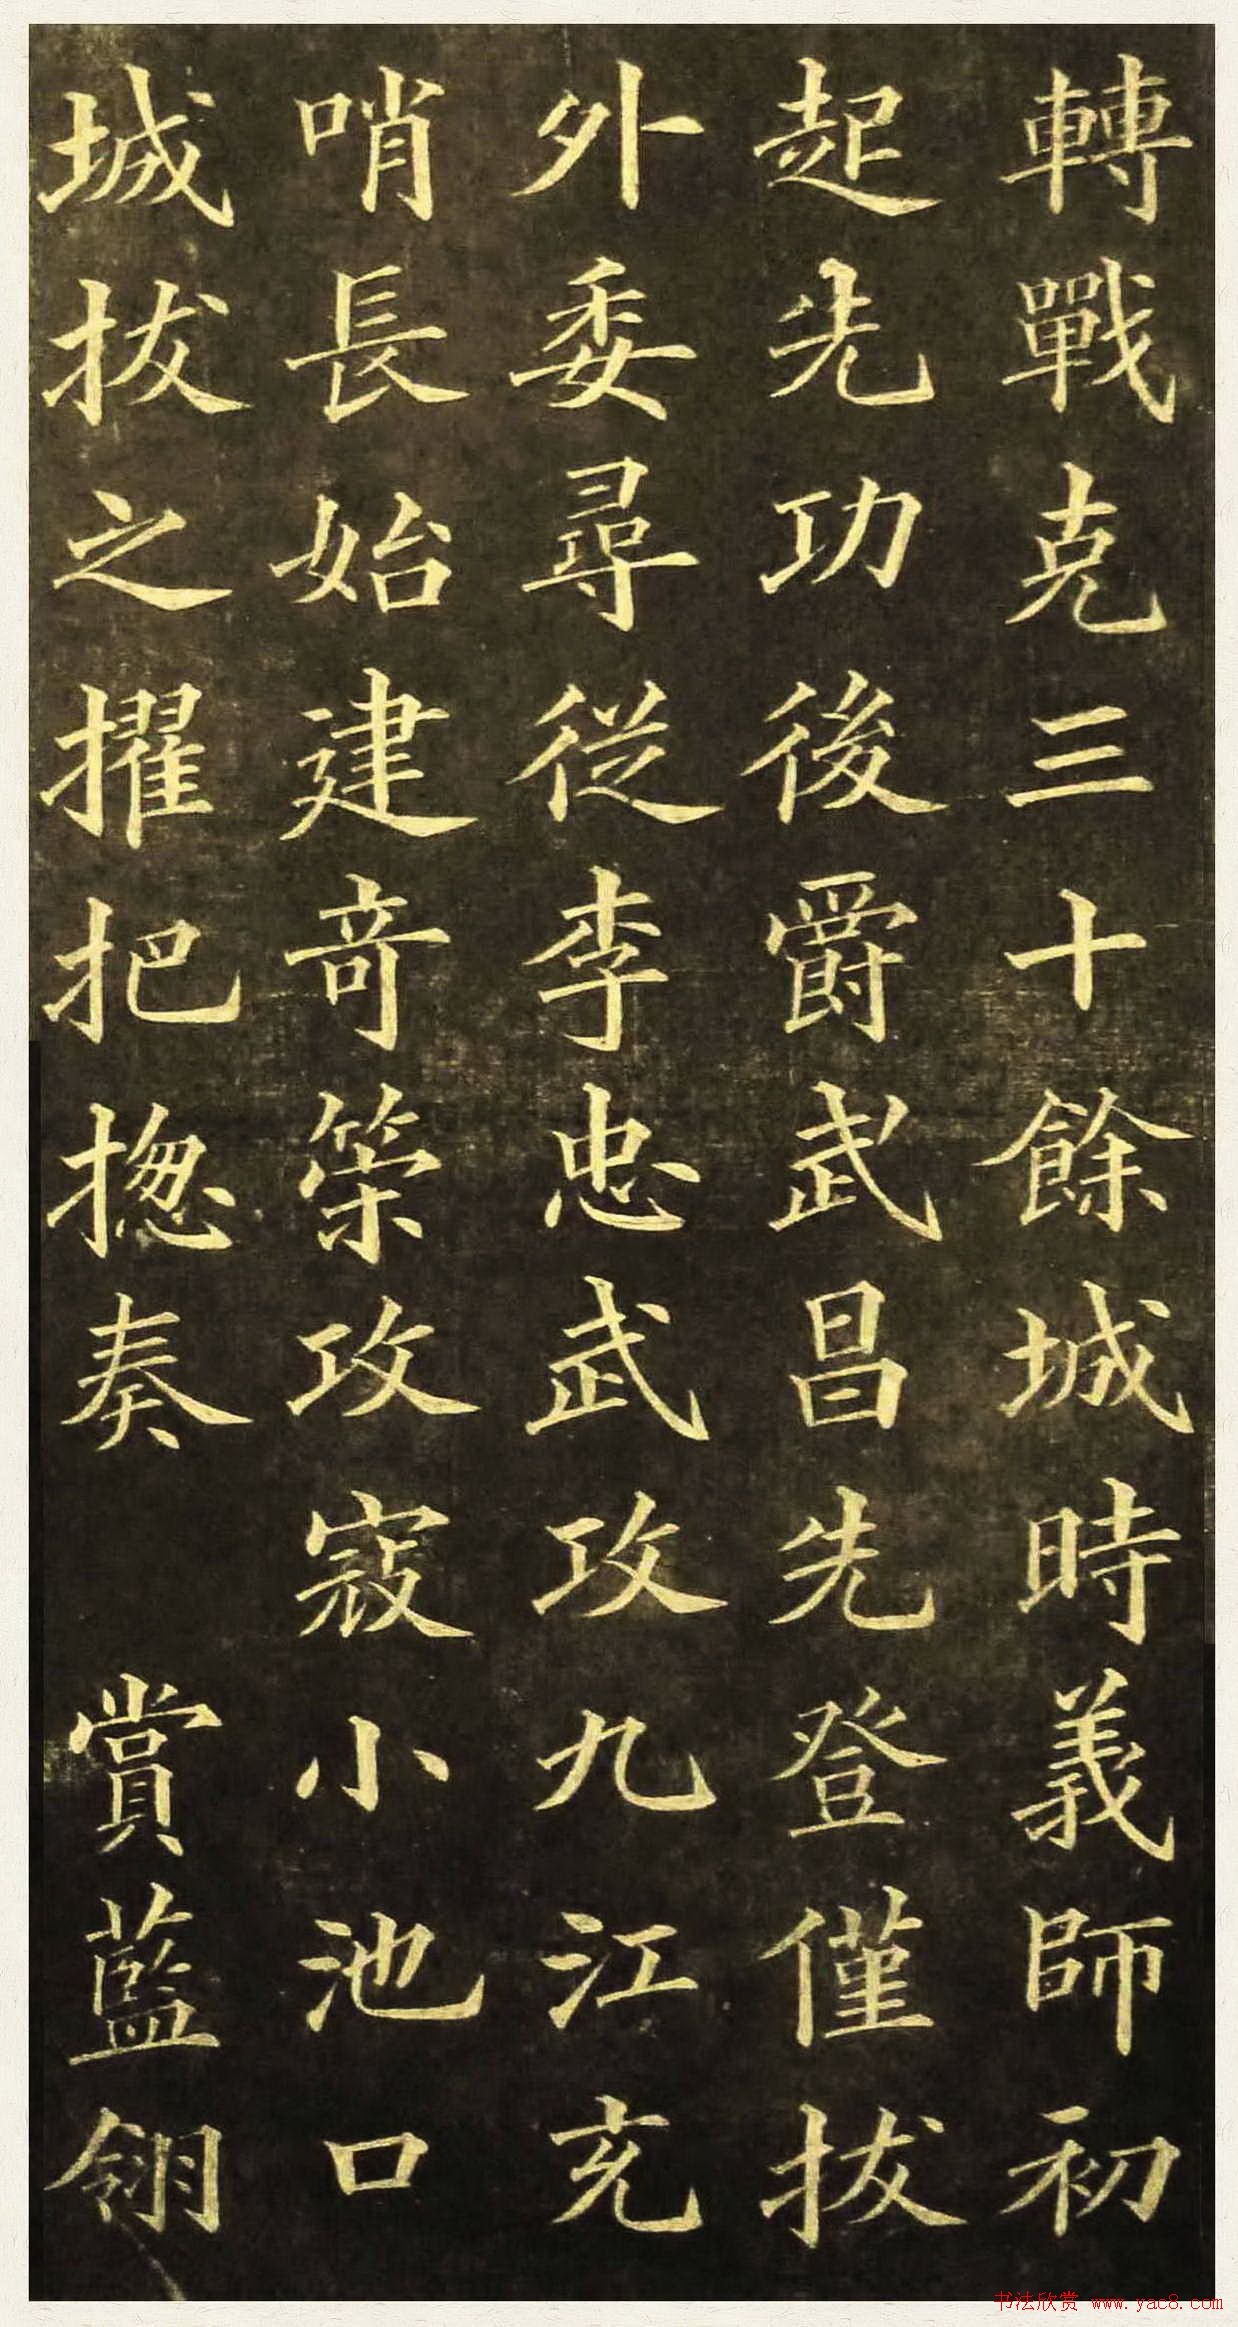 轉戰克三十餘城時義師初
起先功後爵武昌先登僅拔
外委尋從李忠武攻九江充
哨長始建奇築攻寇小池口
城拔之擢把捴奏賞藍翎
书法欣赏 www.yac8.com